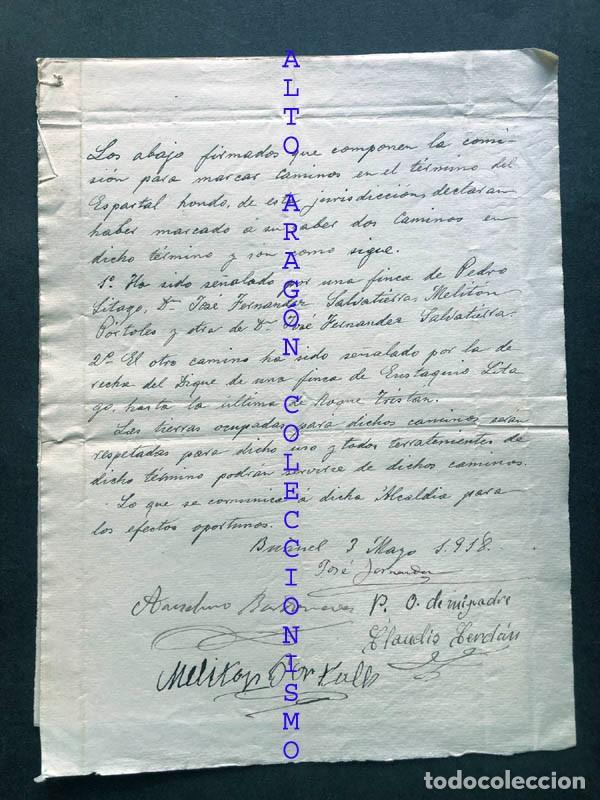 Los abajo firmados que componen la comi-
sión para marcar caminos en el término del
Espartal hondo, de esta jurisdicción, declaran
haber marcado á su saber dos Caminos en
dicho término y són como sigue.
1º. Ha sido señalado por una finca de Pedro
Litago, Dn. José Fernandez Salvatierra, Meliton
Pórtoles y otra de Dn. José Fernandez Salvatierra.
2º El otro camino ha sido señalado por la de
recha del Dique de una finca de Lita
go, hasta la última de Roque Tristán.
Las tierras ocupadas para dichos caminos, serán
respetadas para dicho uso y todos terratenientes de
dicho término podrán servirse de dichos caminos.
Lo que se comunica a dicha Alcaldia para
los efectos oportunos.
Buñuel 3 Mayo 1.918.
José Fernandez
Anselmo
P. O. de mi padre
Claudio Cerdán
Meliton Portoles
ALTO ARAGÓN COLECCIONISMO
todocoleccion